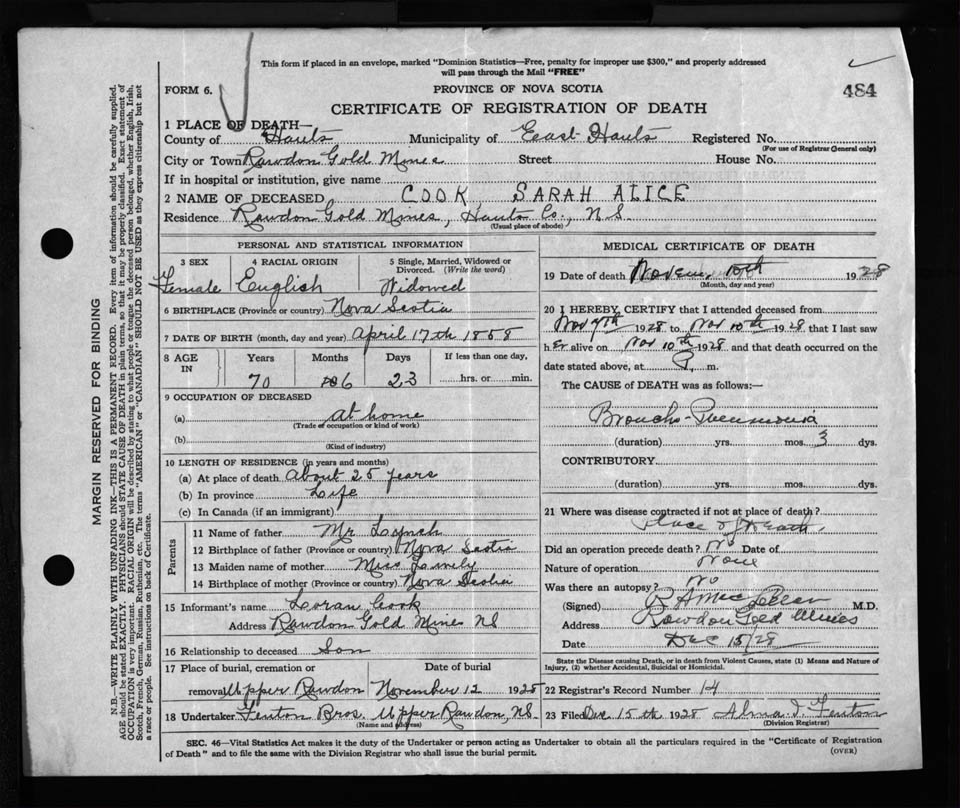 This form if placed in an envelope, marked "Dominion Statistics—Free, penalty for improper use $300," and properly addressed
will pass through the Mail "FREE"
FORM 6.
PROVINCE OF NOVA SCOTIA
484
CERTIFICATE OF REGISTRATION OF DEATH
1 PLACE OF DEATH—
County of Hants Municipality of East Hants Registered No.
(For use of Registrar General only)
City or Town Rawdon Gold Mines Street House No.
If in hospital or institution, give name
2 NAME OF DECEASED COOK, SARAH ALICE
Residence Rawdon Gold Mines, Hants Co., N.S.
(Usual place of abode)
PERSONAL AND STATISTICAL INFORMATION
3 SEX 4 RACIAL ORIGIN 5 Single, Married, Widowed or
Divorced. (Write the word)
Female English Widowed
6 BIRTHPLACE (Province or country) Nova Scotia
7 DATE OF BIRTH (month, day and year) April 17th 1858
8 AGE IN Years Months Days If less than one day,
70 6 23 hrs. or min.
9 OCCUPATION OF DECEASED
(a) at home
(Trade of occupation or kind of work)
(b)
(Kind of industry)
10 LENGTH OF RESIDENCE (in years and months)
(a) At place of death About 25 years
(b) In province Life
(c) In Canada (if an immigrant)
Parents
11 Name of father Mr Lynch
12 Birthplace of father (Province or country) Nova Scotia
13 Maiden name of mother Miss
14 Birthplace of mother (Province or country) Nova Scotia
15 Informant's name Loran Cook
Address Rawdon Gold Mines NS
16 Relationship to deceased Son
17 Place of burial, cremation or Date of burial
removal Upper Rawdon November 12 1928
18 Undertaker Fenton Bros. Upper Rawdon, NS.
(Name and address)
MEDICAL CERTIFICATE OF DEATH
19 Date of death Novem. 10th 1928
(Month, day and year)
20 I HEREBY CERTIFY that I attended deceased from
Nov 7th 1928 to Nov 10th 1928 that I last saw
her alive on Nov 10th 1928 and that death occurred on the
date stated above, at P. m.
The CAUSE of DEATH was as follows:—
Broncho-Pneumonia
(duration) yrs. mos. 3 dys.
CONTRIBUTORY
(duration) yrs. mos. dys.
21 Where was disease contracted if not at place of death?
Place of Death.
Did an operation precede death? No Date of
Nature of operation None
Was there an autopsy? No
(Signed) M.D.
Address Rawdon Gold Mines
Date Dec 15/28
State the Disease causing Death, or in death from Violent Causes, state (1) Means and Nature of
Injury, (2) whether Accidental, Suicidal or Homicidal.
22 Registrar's Record Number 14
23 Filed Dec 15th 1928 Alma I. Fenton
(Division Registrar)
SEC. 46—Vital Statistics Act makes it the duty of the Undertaker or person acting as Undertaker to obtain all the particulars required in the "Certificate of Registration
of Death" and to file the same with the Division Registrar who shall issue the burial permit.
(OVER)
MARGIN RESERVED FOR BINDING
N.B.—WRITE PLAINLY WITH UNFADING INK—THIS IS A PERMANENT RECORD. Every item of information should be carefully supplied.
AGE should be stated EXACTLY. PHYSICIANS should STATE CAUSE OF DEATH in plain terms, so that it may be properly classified. Exact statement of
OCCUPATION is very important. RACIAL ORIGIN will be described by stating to what people or the deceased person belonged, whether English, Irish,
Scotch, French, German, Russian, Ruthenian, etc. The terms "AMERICAN" or "CANADIAN" SHOULD NOT BE USED as they express citizenship but not
a race or people. See instructions on back of Certificate.